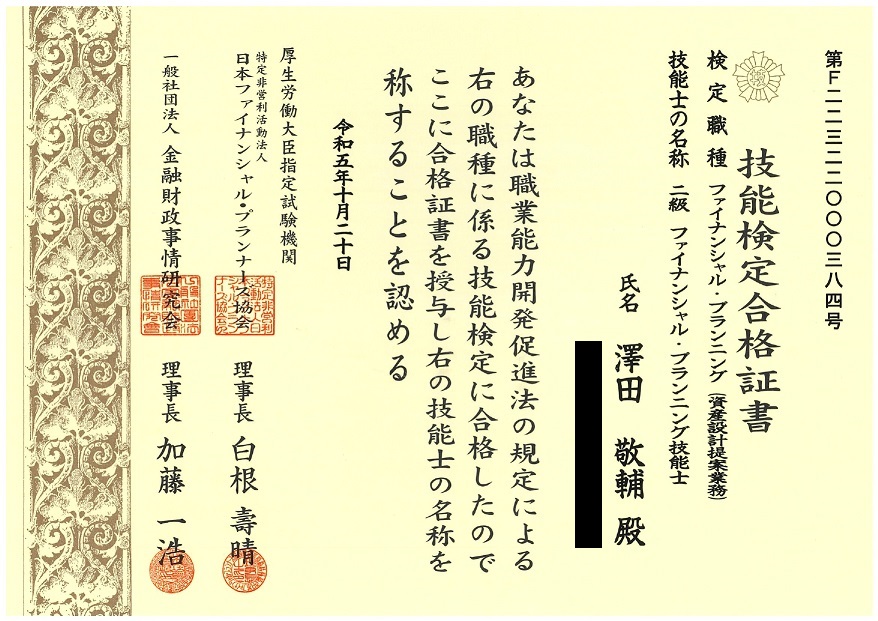 第F二二三二二〇〇〇三八四号
技能検定合格証書
検定職種 ファイナンシャル・プランニング(資産設計提案業務)
技能士の名称 二級 ファイナンシャル・プランニング技能士
氏名 澤田 敬輔 殿
あなたは職業能力開発促進法の規定による
右の職種に係る技能検定に合格したので
ここに合格証書を授与し右の技能士の名称を
称することを認める
令和五年十月二十日
厚生労働大臣指定試験機関
特定非営利活動法人
日本ファイナンシャル・プランナーズ協会 理事長 白根 壽晴
一般社団法人 金融財政事情研究会 理事長 加藤 一浩